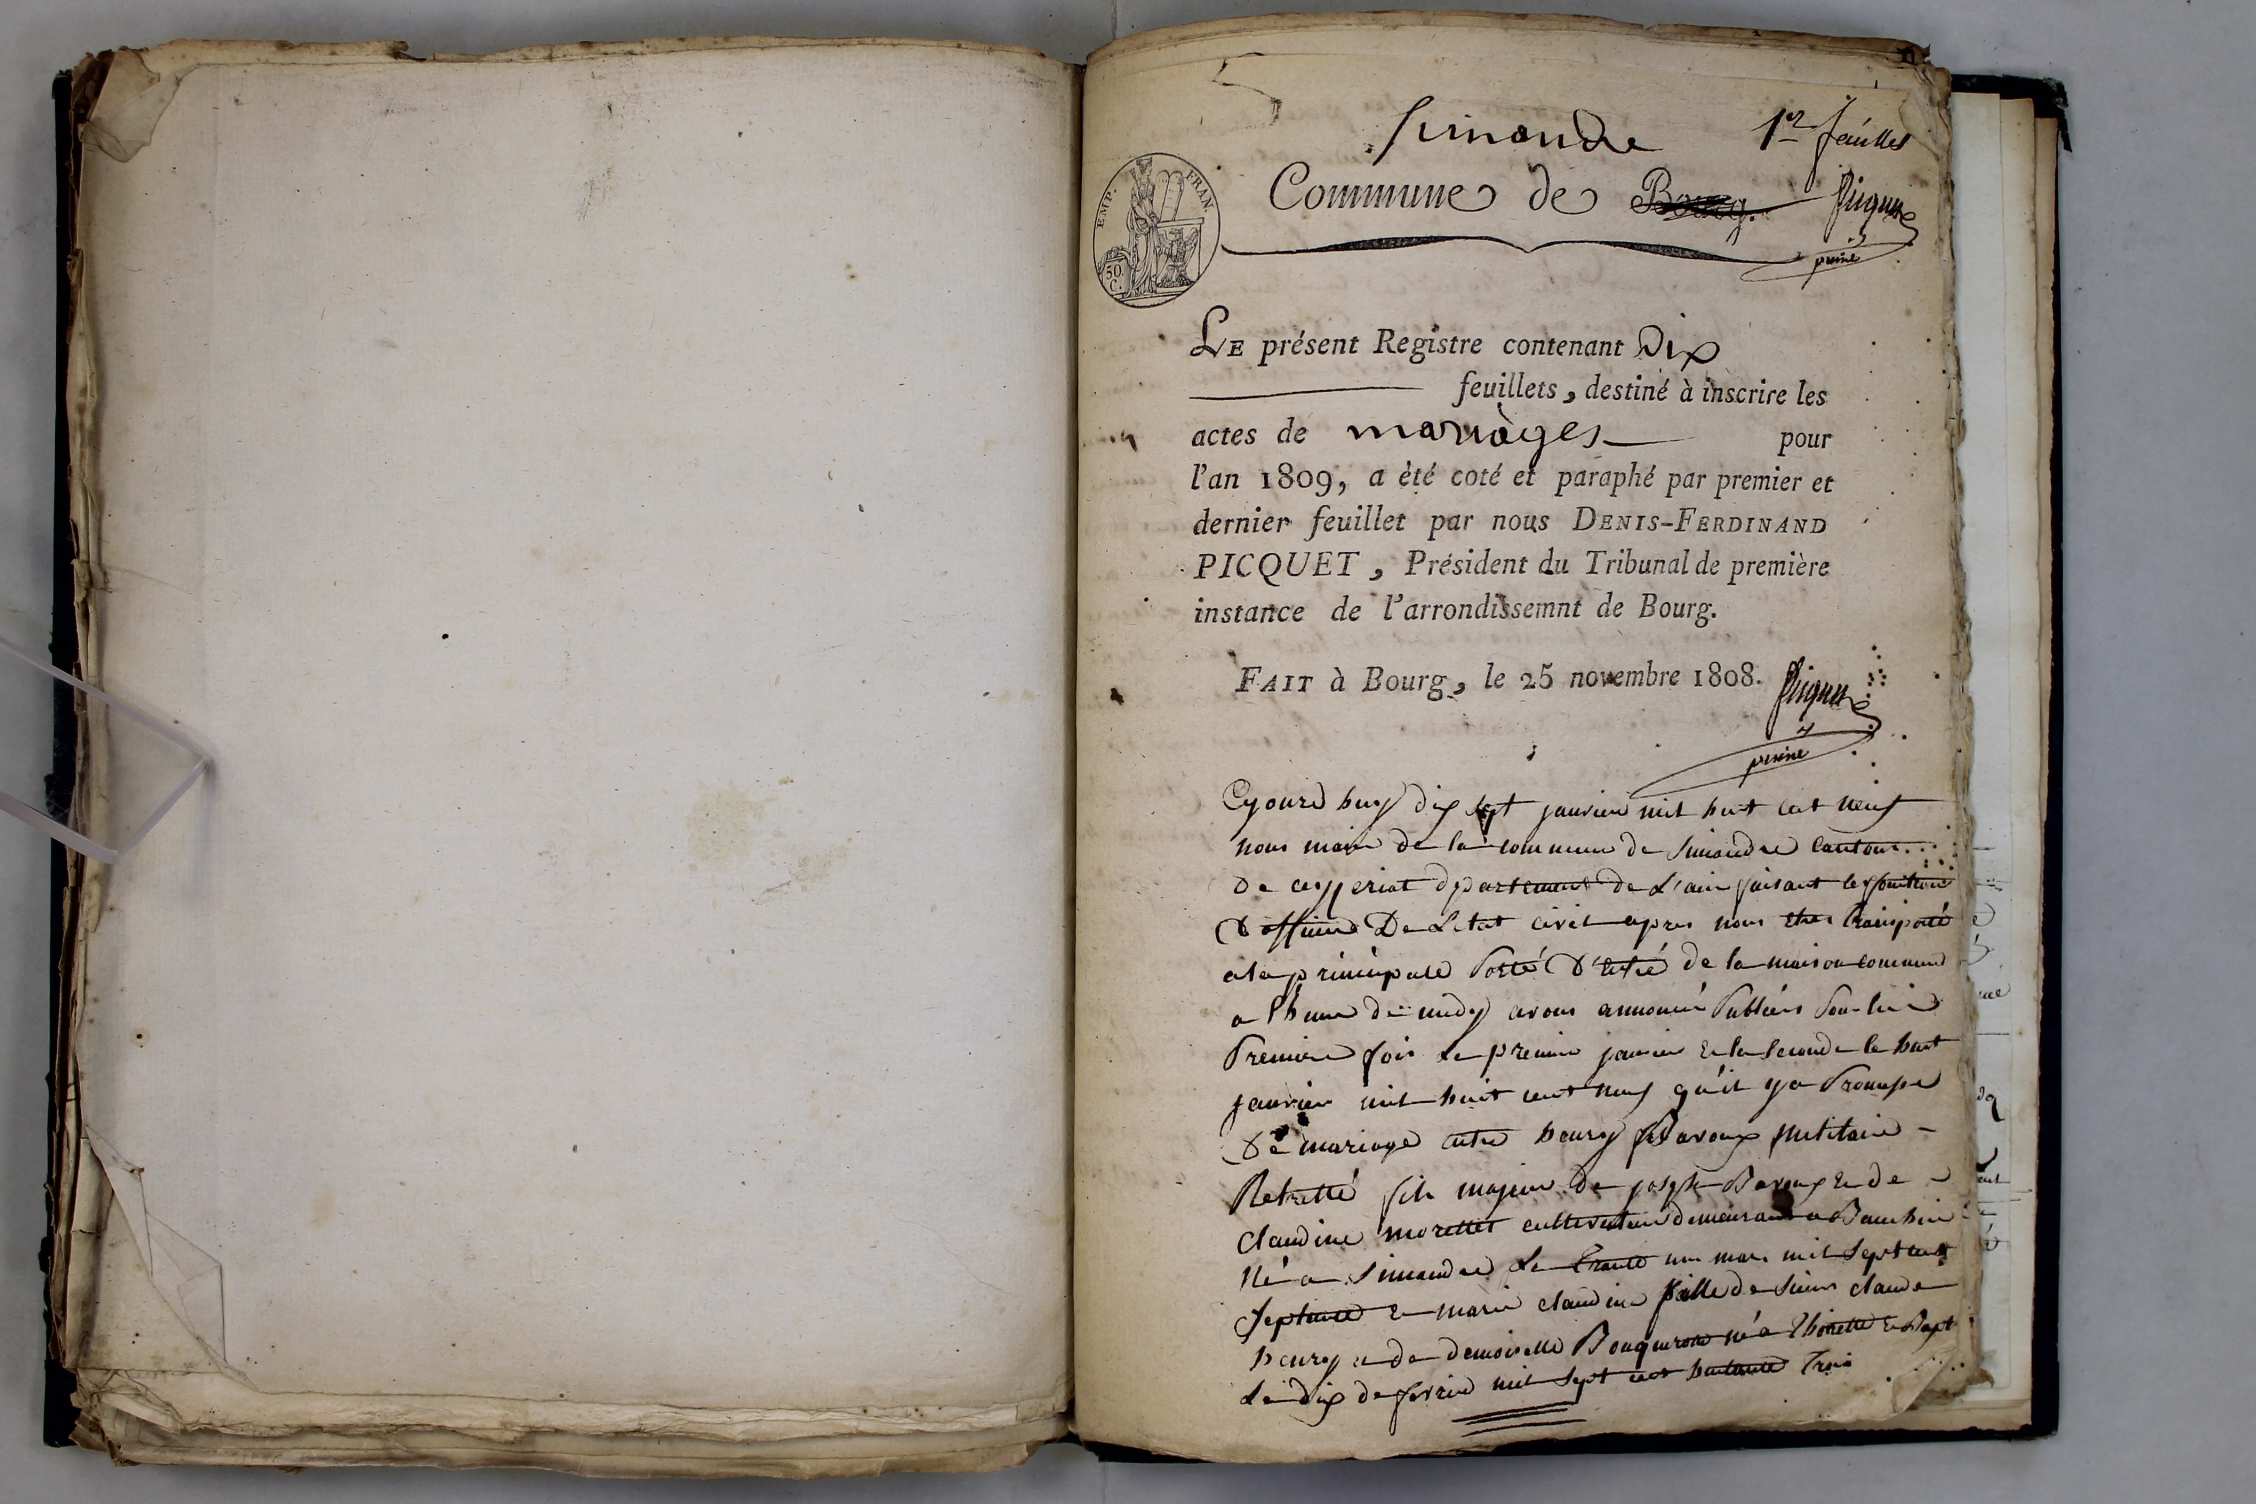 Simandre
1er feuillet
Commune de Bourg.
EMP. FRAN.
50
C.
LE présent Registre contenant Dix
feuillets, destiné à inscrire les
actes de mariages pour
l'an 1809, a été coté et paraphé par premier et
dernier feuillet par nous DENIS-FERDINAND
PICQUET, Président du Tribunal de première
instance de l'arrondissemnt de Bourg.
FAIT à Bourg, le 25 novembre 1808.
Cejourd huy dix sept janvier mil huit cent neuf
nous maire de la commune de Simandre Canton
de ceyzeriat departement de L'ain faisant les fonctions
D'officier De Letat civil apres nous etre transporté
a la principale Porte D'entré de la maison commune
a lheure de midy avons annoncé Publiées Pour la
Premiere fois Le premier janvier Et la Seconde le huit
janvier mil huit cent neuf qu'il y a Promesse
De mariage entre henry Bavoux Militaire
Retretté fils majeur de joseph Bavoux Et de
Claudine morellet cultivateur demeurant a
Né a Simandre Le trente un mars mil Sept cent
Septante Et marie claudine fille de Sieur claude
henry et de demoiselle né a Thoirette
Le dix de fevrier mil Sept cent huitante Trois